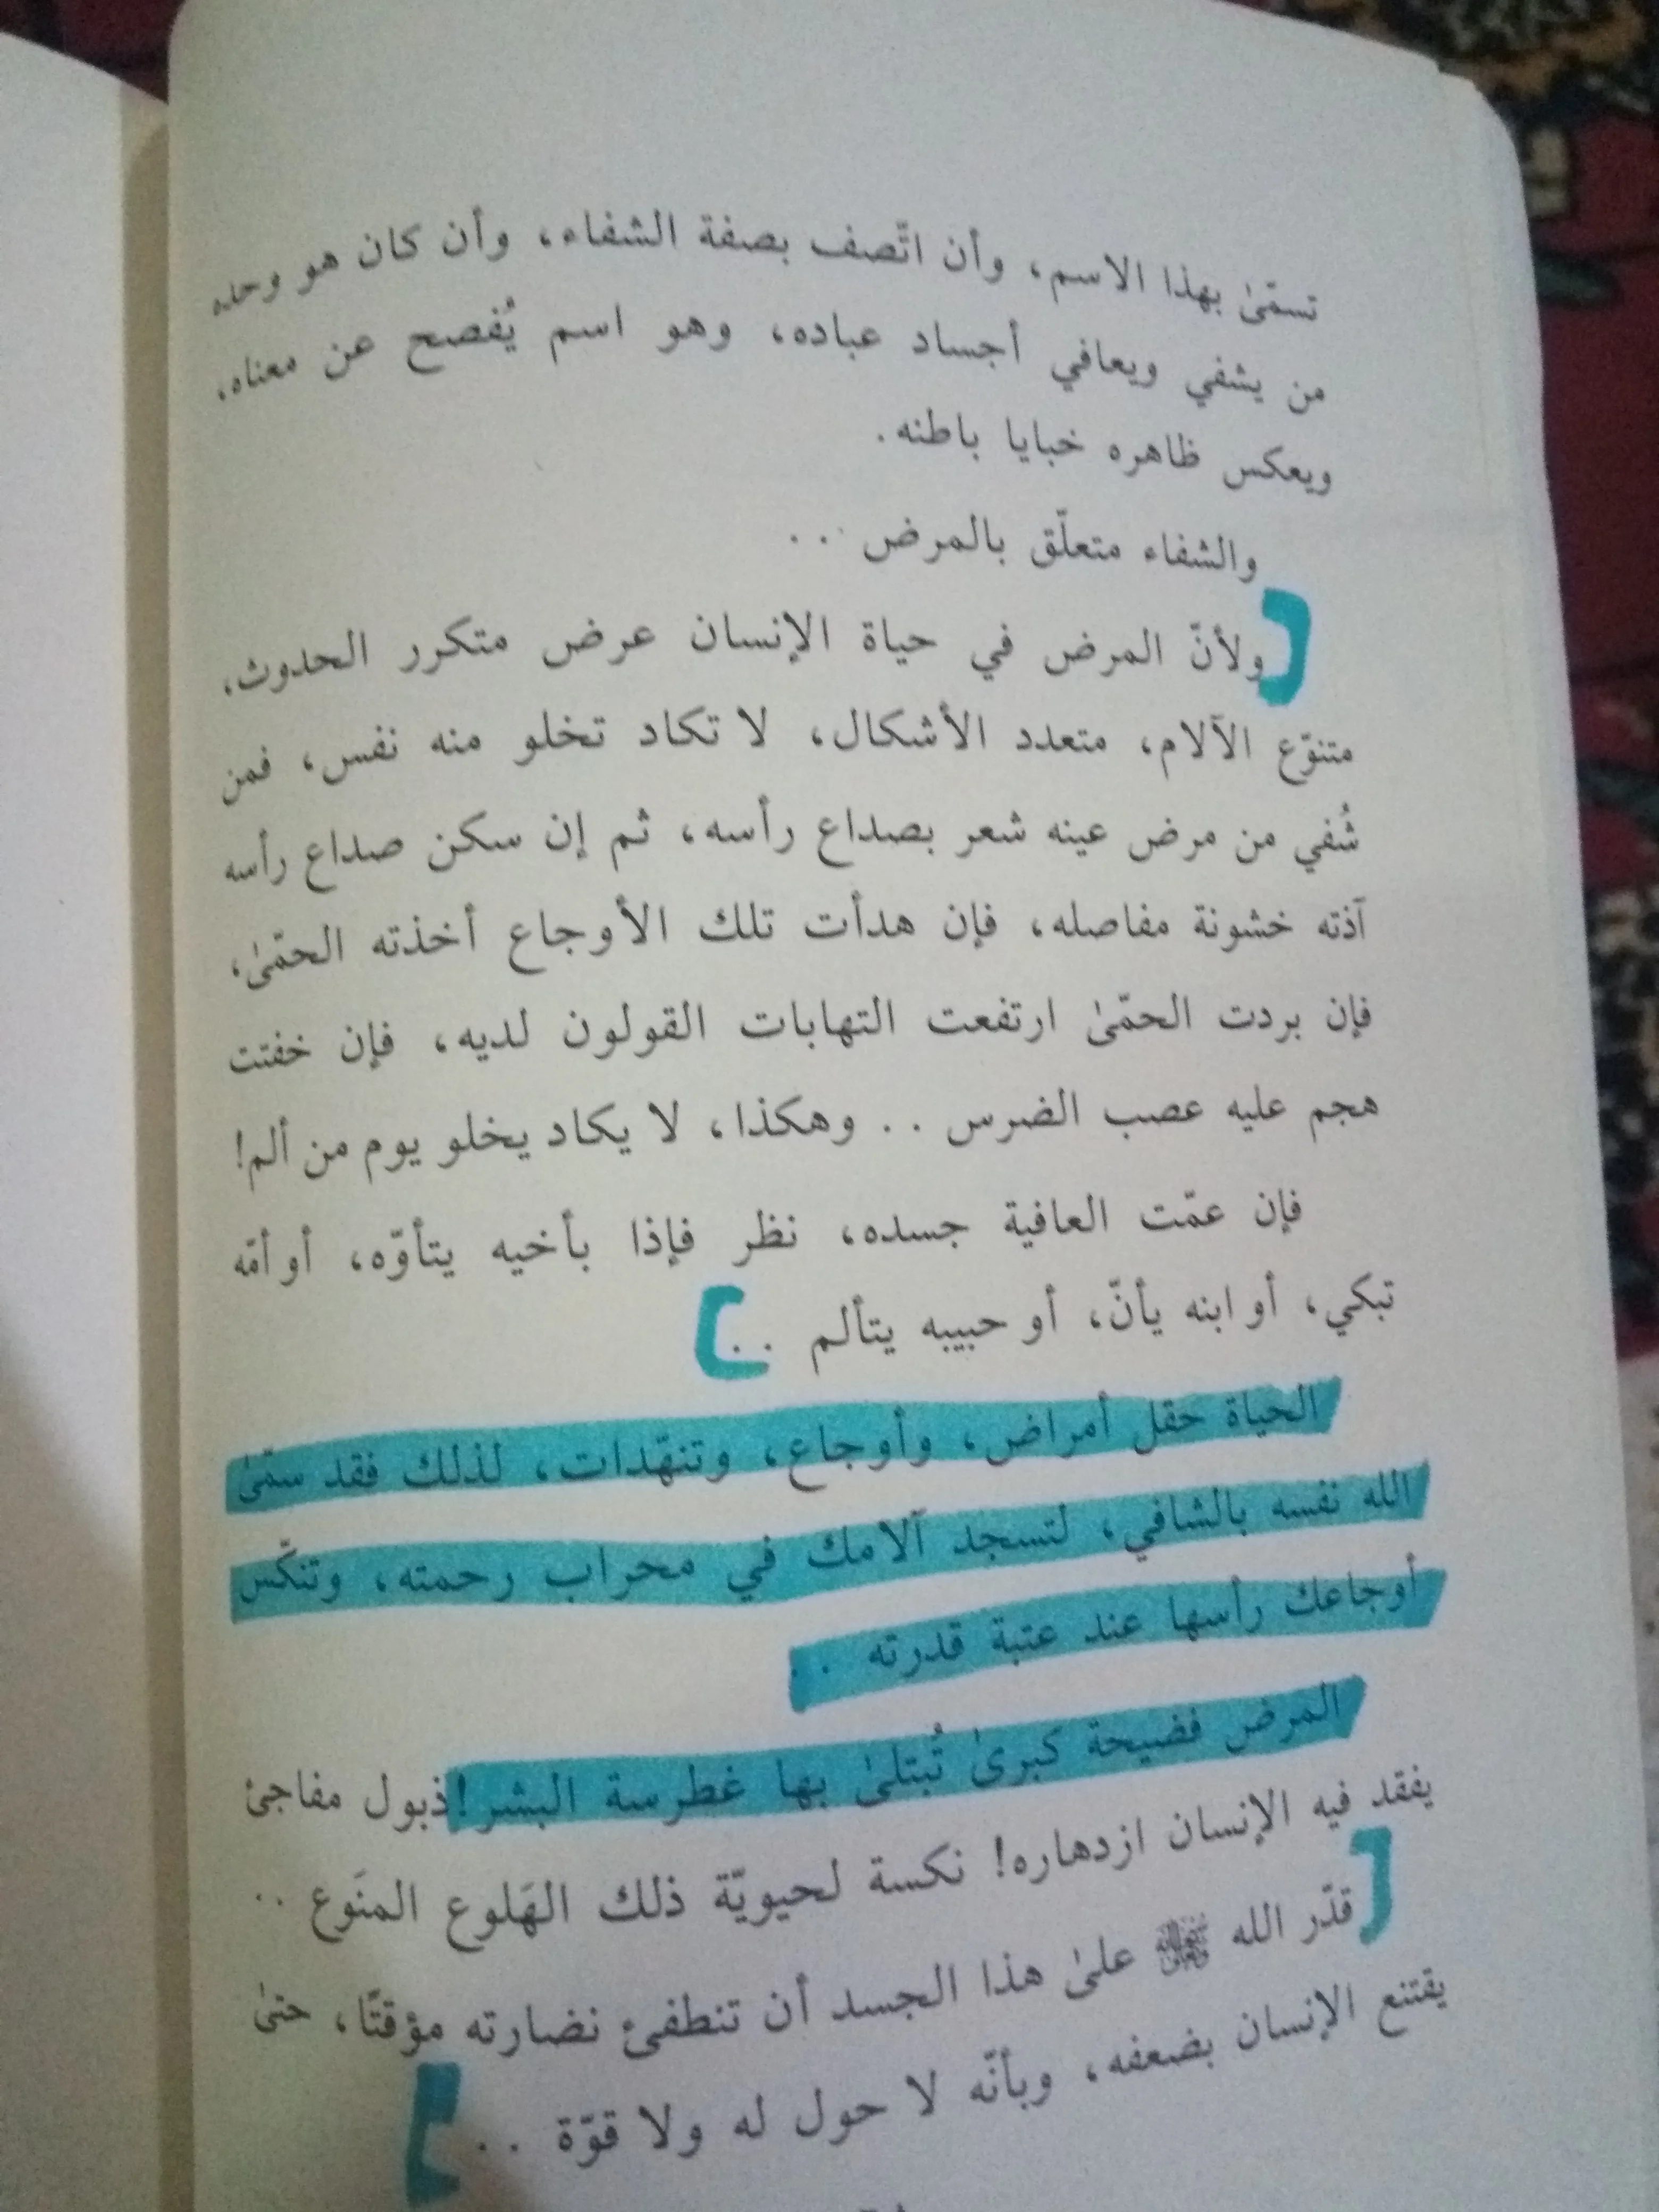 تسمّىٰ بهذا الاسم، وأن اتّصف بصفة الشفاء، وأن كان هو وحده
من يشفي ويعافي أجساد عباده، وهو اسم يُفصح عن معناه،
ويعكس ظاهره خبايا باطنه.
والشفاء متعلّق بالمرض ..
ولأنّ المرض في حياة الإنسان عرض متكرر الحدوث،
متنوّع الآلام، متعدد الأشكال، لا تكاد تخلو منه نفس، فمن
شُفي من مرض عينه شعر بصداع رأسه، ثم إن سكن صداع رأسه
آذته خشونة مفاصله، فإن هدأت تلك الأوجاع أخذته الحمّىٰ،
فإن بردت الحمّىٰ ارتفعت التهابات القولون لديه، فإن خفتت
هجم عليه عصب الضرس .. وهكذا، لا يكاد يخلو يوم من ألم!
فإن عمّت العافية جسده، نظر فإذا بأخيه يتأوّه، أو أمّه
تبكي، أو ابنه يأنّ، أو حبيبه يتألم ..
الحياة حقل أمراض، وأوجاع، وتنهّدات، لذلك فقد سمّىٰ
الله نفسه بالشافي، لتسجد آلامك في محراب رحمته، وتنكّس
أوجاعك رأسها عند عتبة قدرته ..
المرض فضيحة كبرىٰ تُبتلىٰ بها غطرسة البشر! ذبول مفاجئ
يفقد فيه الإنسان ازدهاره! نكسة لحيويّة ذلك الهَلوع المنَوع ..
قدّر الله ﷻ علىٰ هذا الجسد أن تنطفئ نضارته مؤقتًا، حتىٰ
يقتنع الإنسان بضعفه، وبأنّه لا حول له ولا قوّة ..